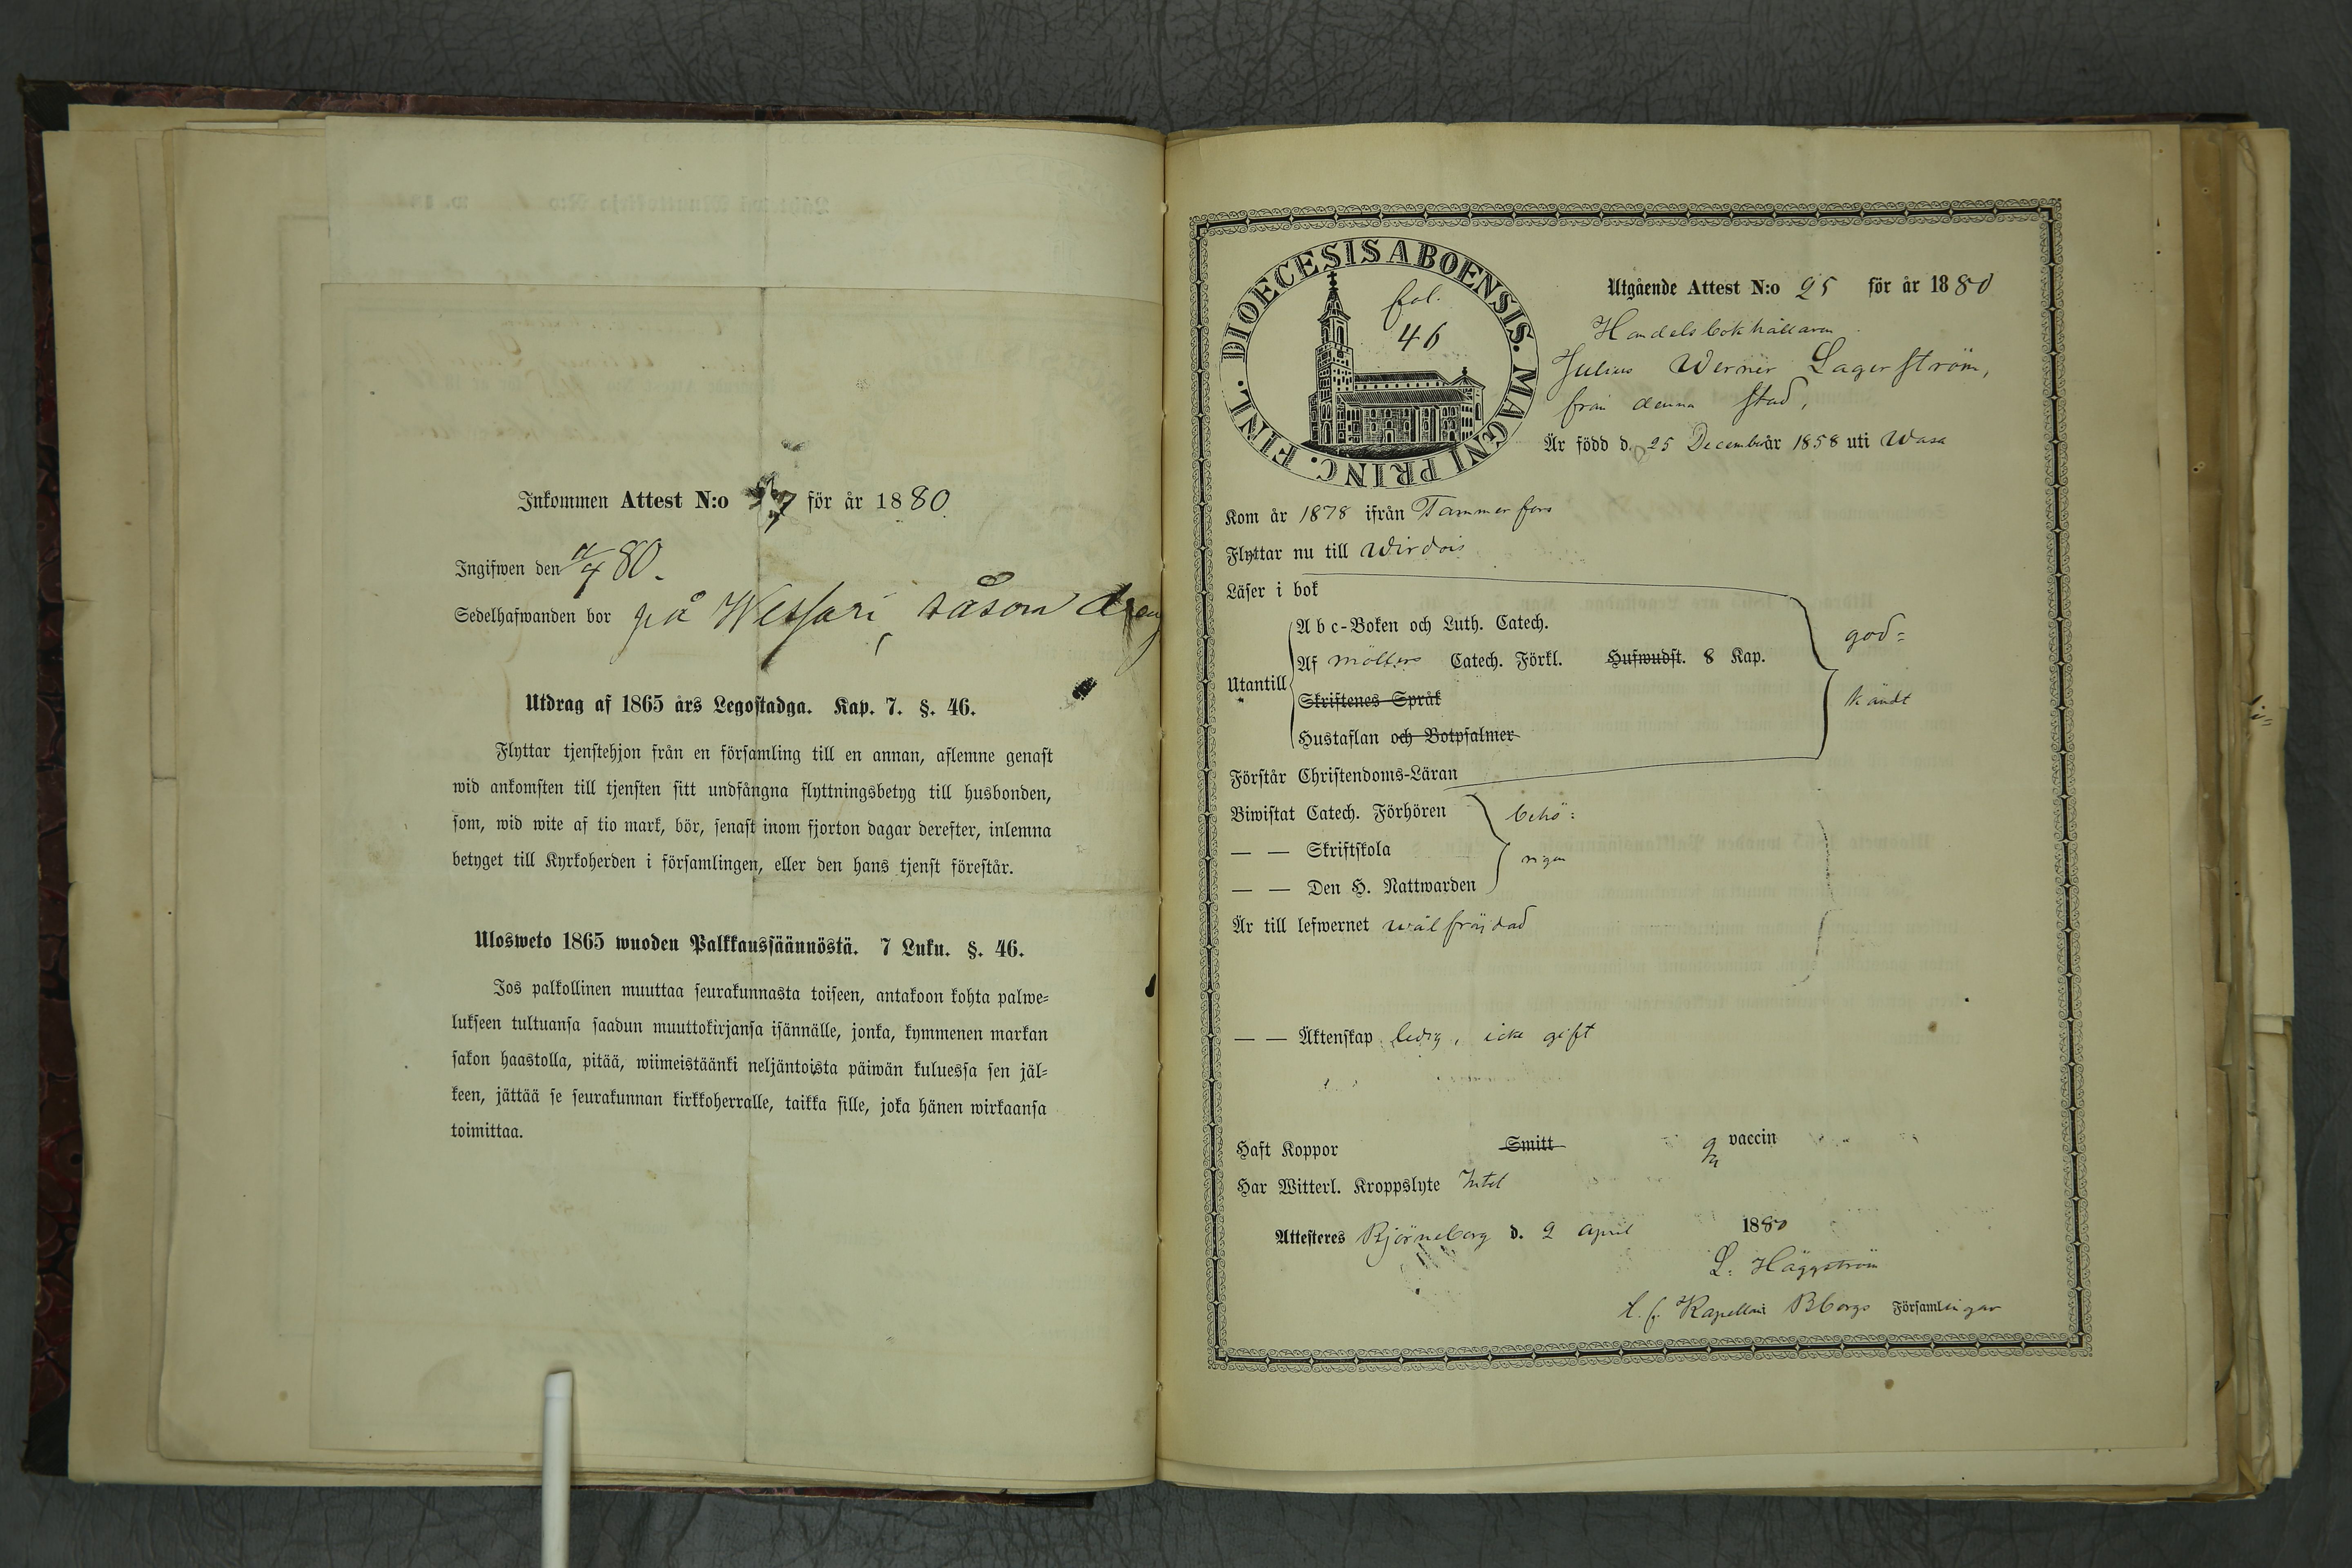 Inkommen Attest N:o 37 för år 1880
Ingifwen den /4 80.
Sedelhafwanden bor på Wessari, såsom dreng
Utdrag af 1865 års Legostadga. Kap. 7. §. 46.
Flyttar tjenstehjon från en församling till en annan, aflemne genast
wid ankomsten till tjensten sitt undfångna flyttningsbetyg till husbonden,
som, wid wite af tio mark, bör, senast inom fjorton dagar derefter, inlemna
betyget till Kyrkoherden i församlingen, eller den hans tjenst förestår.
Ulosweto 1865 wuoden Palkkaussäännöstä. 7 Luku. §. 46.
Jos palkollinen muuttaa seurakunnasta toiseen, antakoon kohta palwe=
lukseen tultuansa saadun muuttokirjansa isännälle, jonka, kymmenen markan
sakon haastolla, pitää, wiimeistäänki neljäntoista päiwän kuluessa sen jäl=
keen, jättää se seurakunnan kirkkoherralle, taikka sille, joka hänen wirkaansa
toimittaa.
DIOECESIS ABOENSIS. MAGNI PRINC. FINL.
fol.
46
Utgående Attest N:o 25 för år 1880
Handelsbokhållaren
Julius Werner Lagerström,
från denna stad,
Är född d. 25 December år 1858 uti Wasa
Kom år 1878 ifrån Tammerfors
Flyttar nu till Wirdois
Läser i bok
Utantill
A b c-Boken och Luth. Catech.
Af Möllers Catech. Förkl. Hufwudst. 8 Kap.
Skriftenes Språk
Hustaflan och Botpsalmer
god=
kändt
Förstår Christendoms-Läran
Biwistat Catech. Förhören
— — Skriftskola
— — Den H. Nattwarden
behö=
rigen
Är till lefwernet wälfräjdad
— — Äktenskap ledig, icke gift
Haft Koppor Smitt vaccin
Har Witterl. Kroppslyte Intet
Attesteres Björneborg d. 2 April 1880
L. Häggström
t. f. Kapellan i Bborgs Församlingar